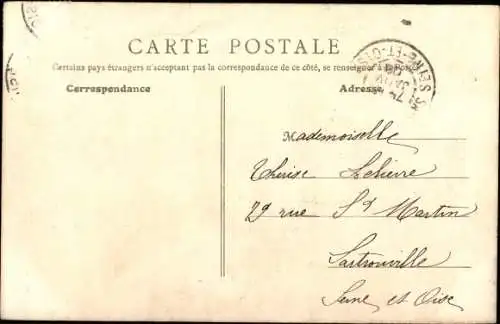 CARTE POSTALE
Certains pays étrangers n'acceptant pas la correspondance de ce côté, se renseigner à la Poste
Correspondance
Adresse
SEINE-ET-OISE
Mademoiselle
Thérèse Lelièvre
29 rue St Martin
Sartrouville
Seine et Oise